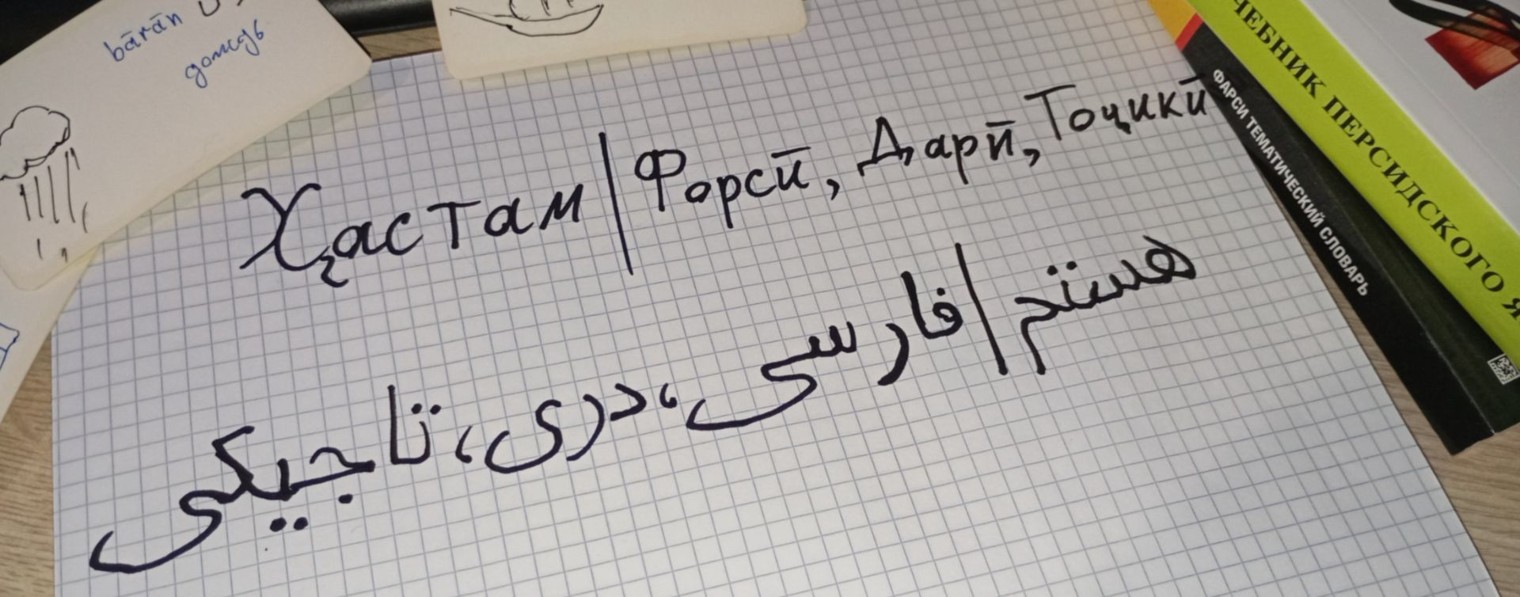 bārān
дождь
Ҳастам | Форсӣ, Дарӣ, Тоҷикӣ
هستم | فارسی، دری، تاجیکی
ЧЕБНИК ПЕРСИДСКОГО Я
ФАРСИ ТЕМАТИЧЕСКИЙ СЛОВАРЬ